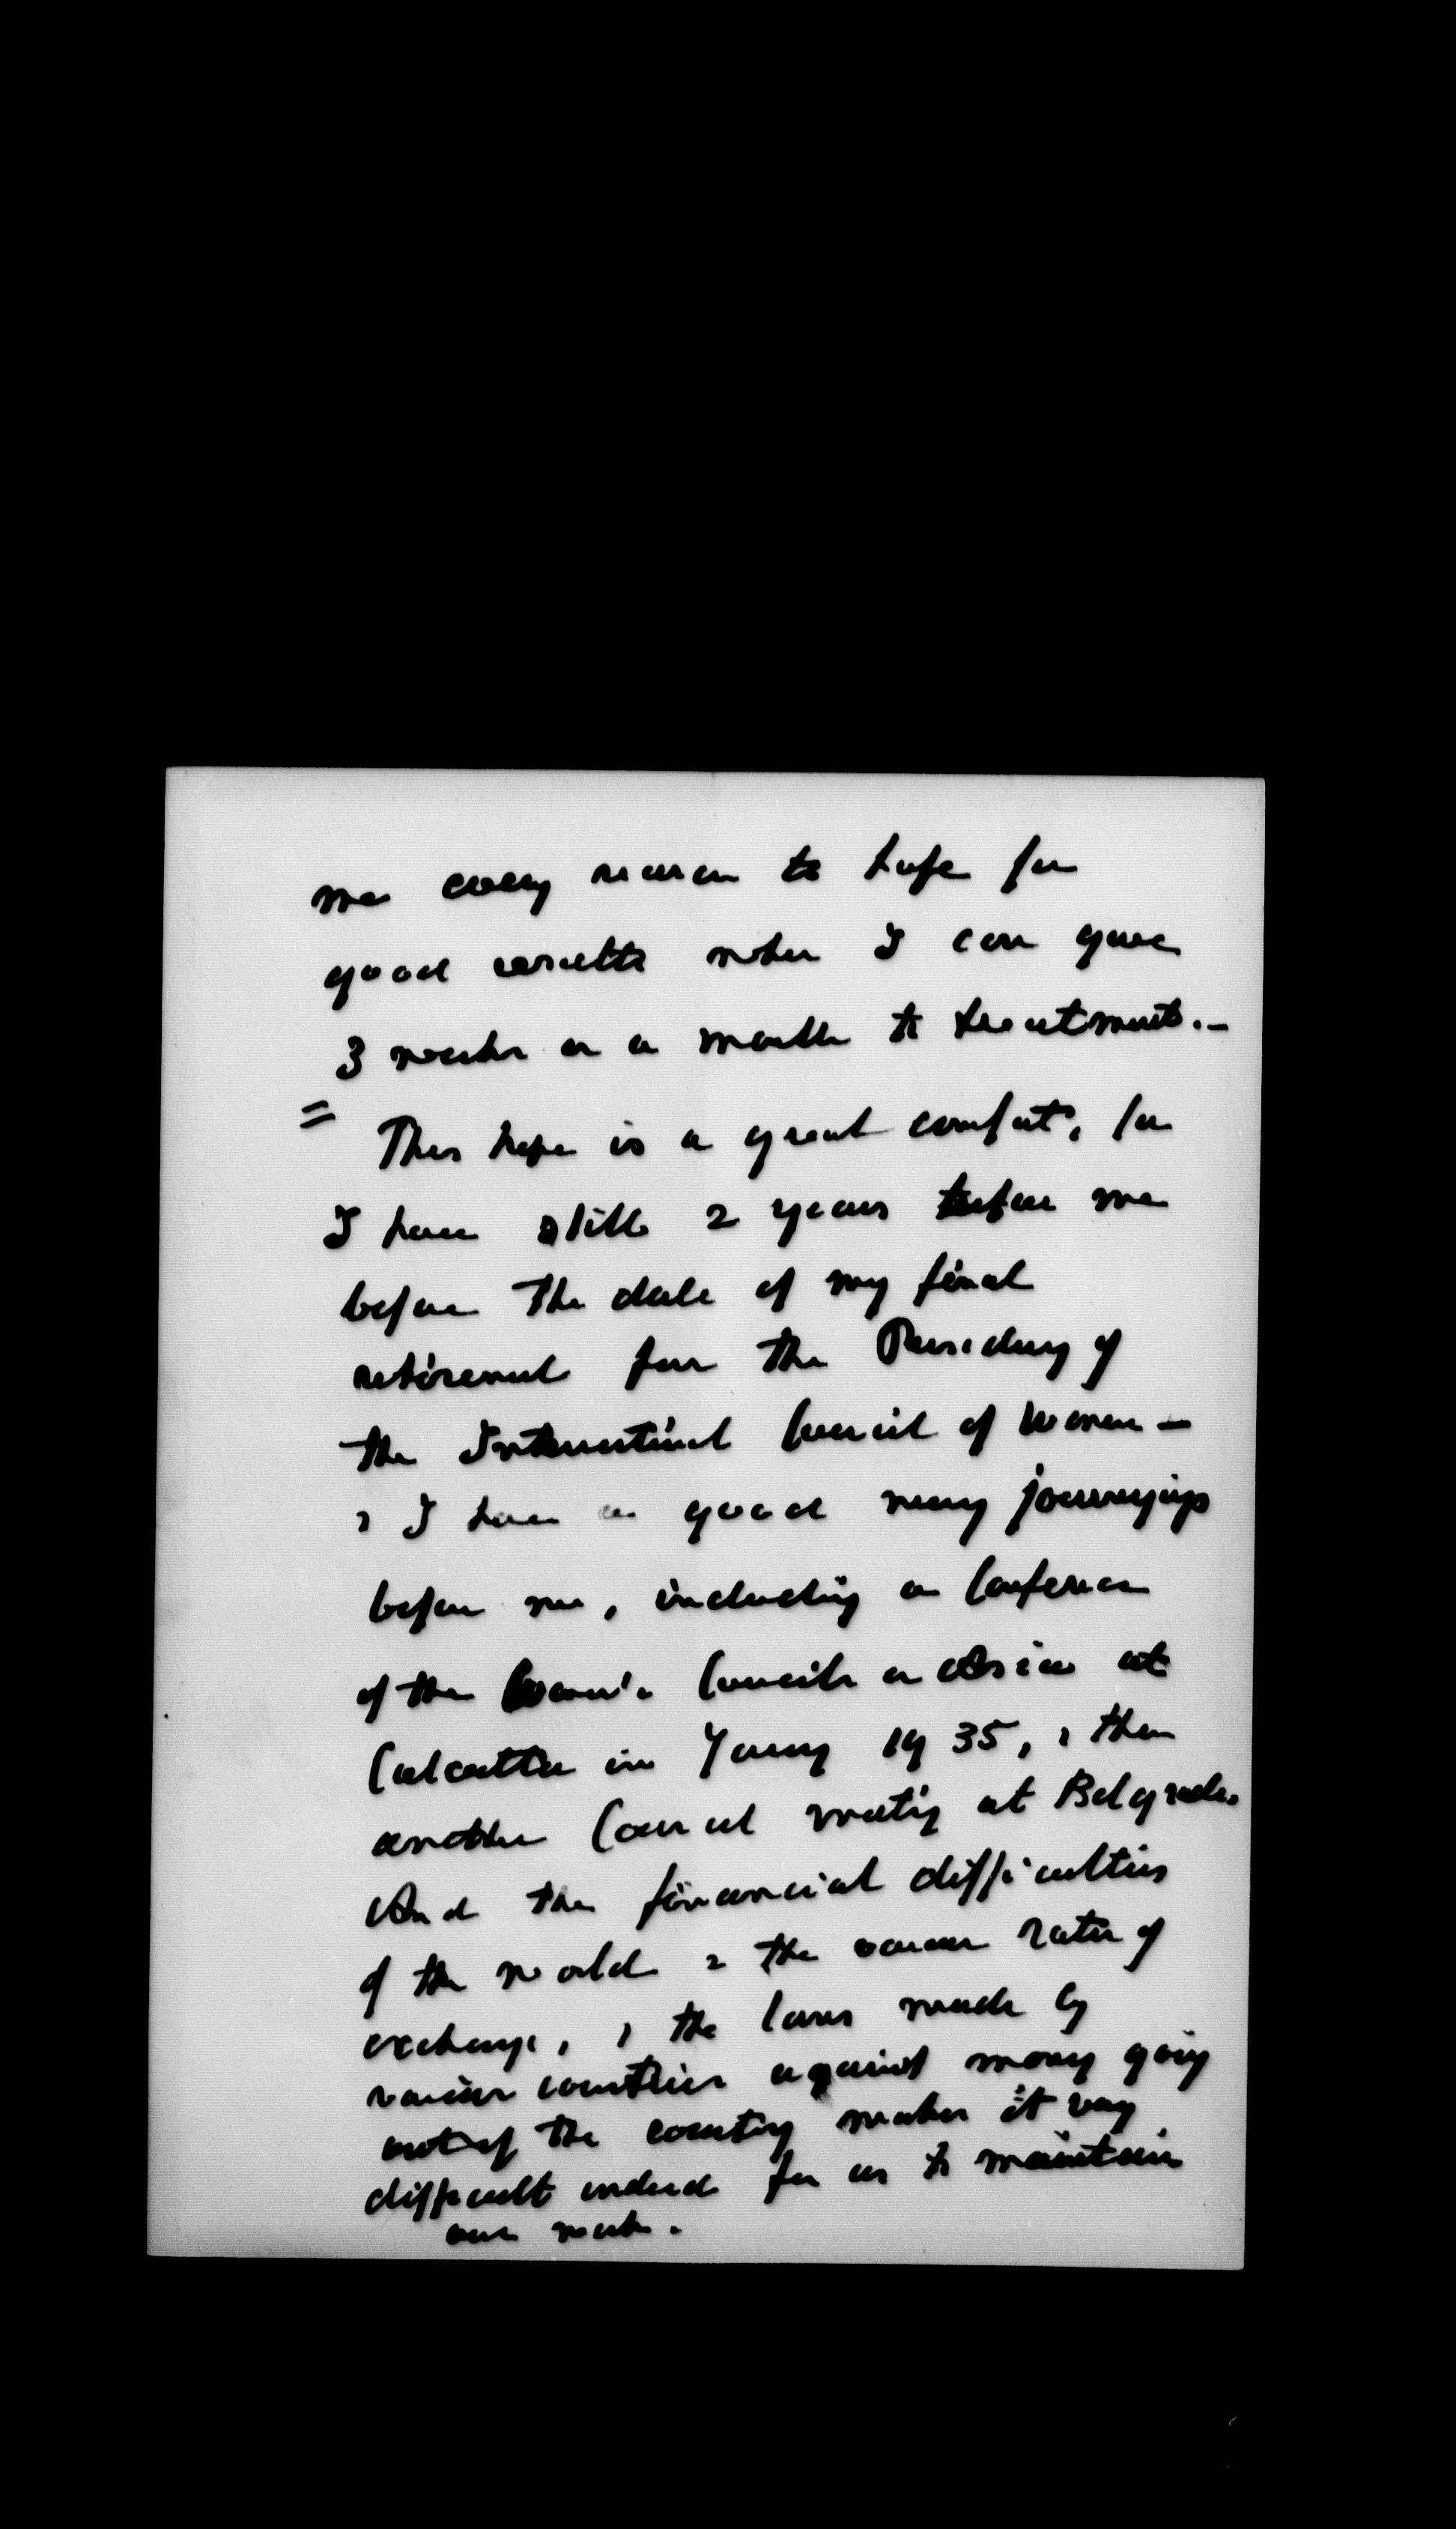 me every reason to hope for
good results when I can give
3 weeks or a month to treatment. –
= This hope is a great comfort, for
I have still 2 years before me
before the date of my final
retirement from the Presidency of
the International Council of Women –
& I have a good many journeyings
before me, including a Conference
of the Women's Councils in Asia at
Calcutta in Jany 1935, & then
another Council meeting at Belgrade.
And the financial difficulties
of the world & the various rates of
exchange, & the laws made by
various countries against money going
out of the country makes it very
difficult indeed for us to maintain
our work.